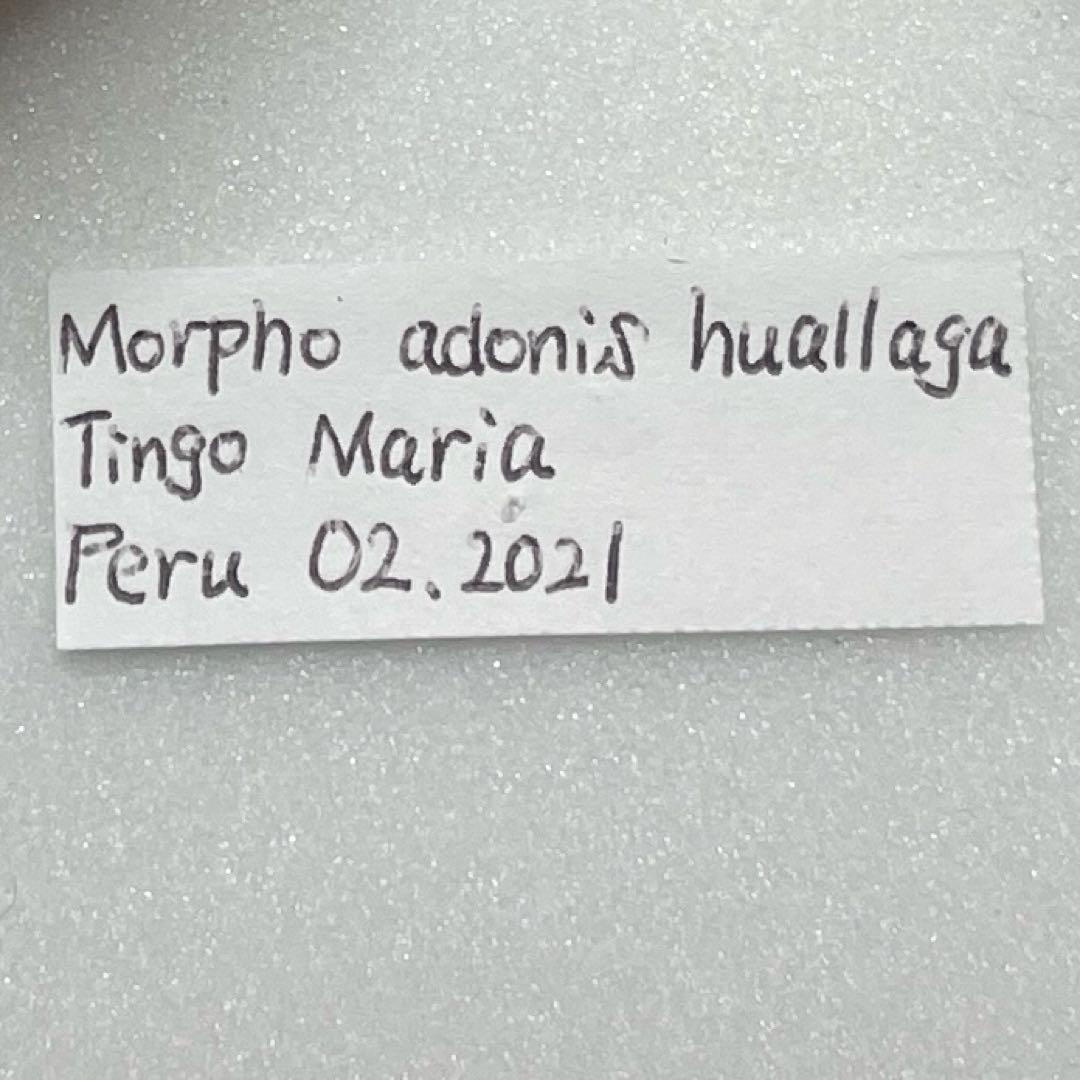 Morpho adonis huallaga
Tingo Maria
Peru 02.2021